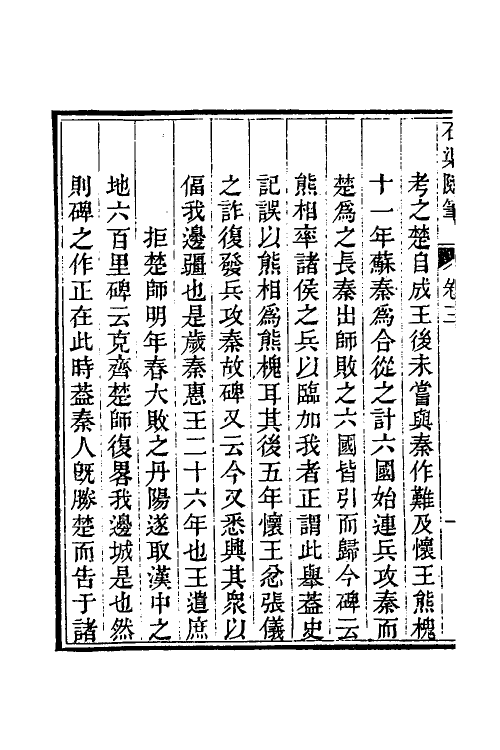 石渠隨筆 卷三
考之楚自成王後未嘗與秦作難及懷王熊槐
十一年蘇秦爲合從之計六國始連兵攻秦而
楚爲之長秦出師敗之六國皆引而歸今碑云
熊相率諸侯之兵以臨加我者正謂此舉葢史
記誤以熊相爲熊槐耳其後五年懷王忿張儀
之詐復發兵攻秦故碑又云今又悉興其衆以
偪我邊疆也是歲秦惠王二十六年也王遣庶
拒楚師明年春大敗之丹陽遂取漢中之
地六百里碑云克齊楚師復畧我邊城是也然
則碑之作正在此時葢秦人旣勝楚而告于諸